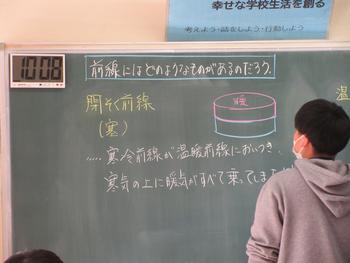 幸せな学校生活を創る
考えよう・話をしよう・行動しよう
10:08
前線にはどのようなものがあるのだろう
閉そく前線
(寒)
暖
温
‥‥寒冷前線が温暖前線においつき、
寒気の上に暖気がすべて乗ってしま